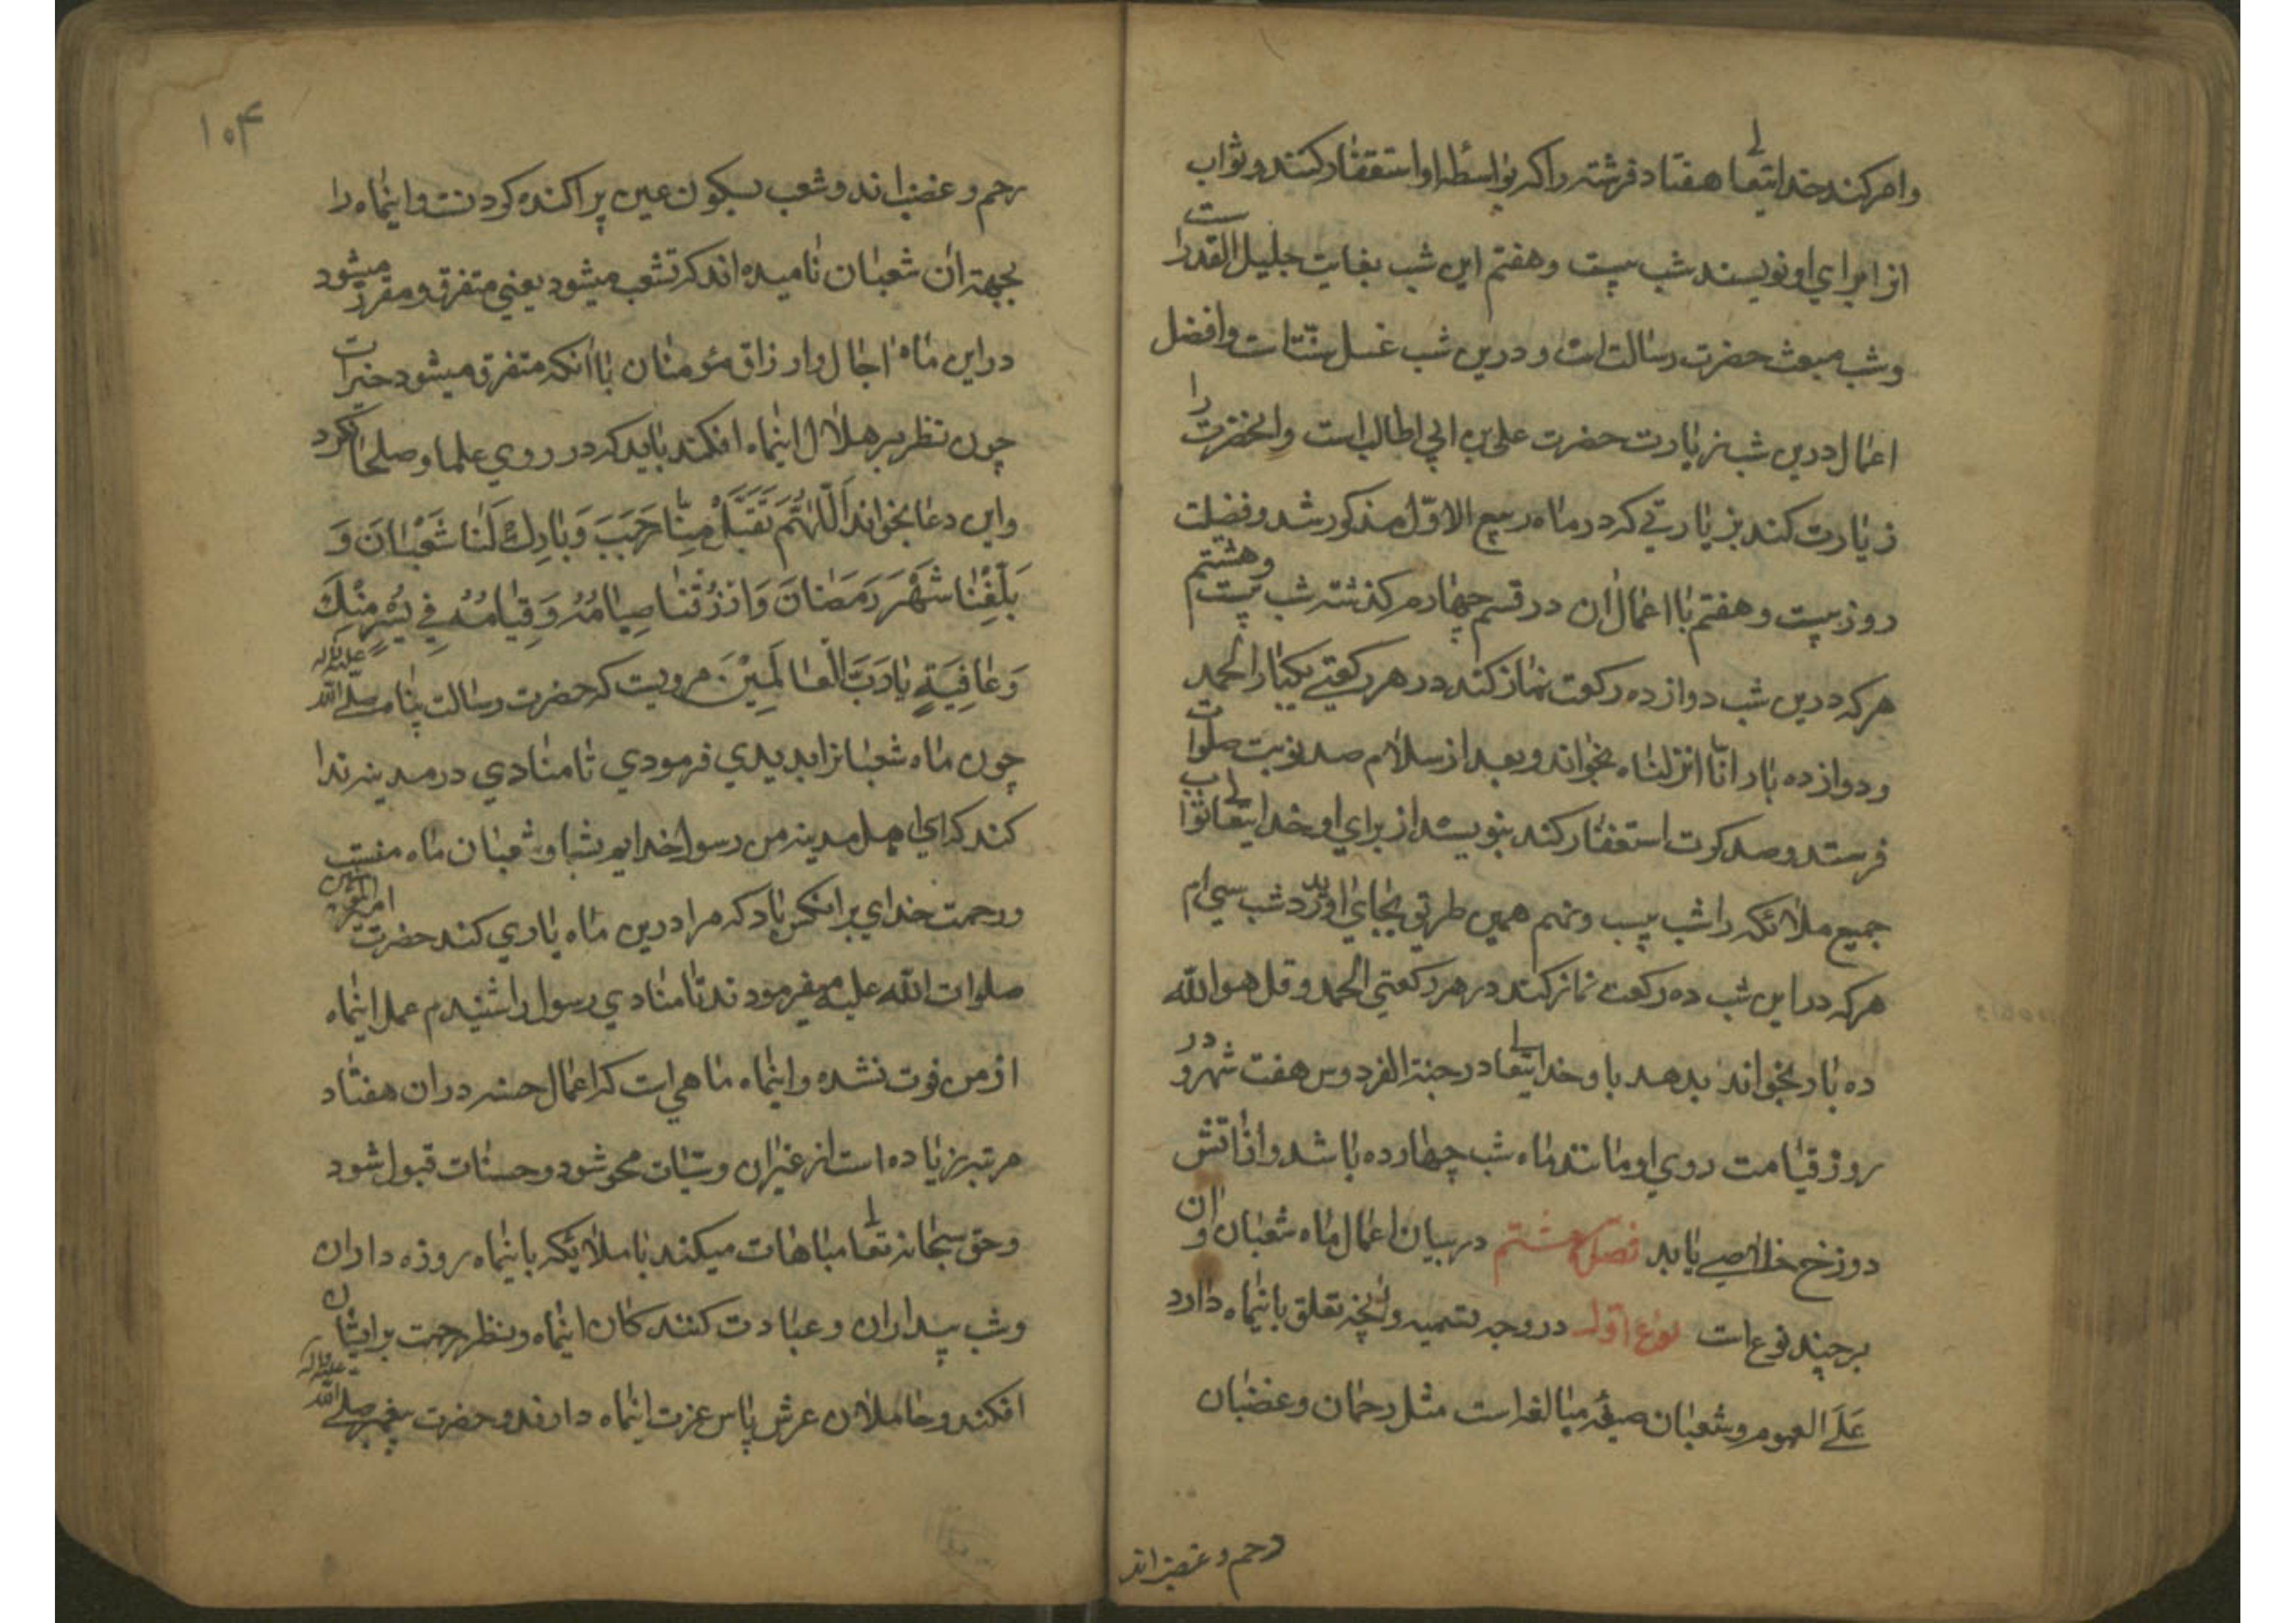 وامر کند خدایتعالی هفتاد فرشته را که بواسطه او استغفار کنند و ثواب
انرا برای او نویسند شب بیست و هفتم این شب بغایت جلیل القدر است
و شب مبعث حضرت رسالت است و درین شب غسل سنت است و افضل
اعمال درین شب زیارت حضرت علی بن ابی طالب است و انحضرت را
زیارت کند بزیارتی که در ماه ربیع الاوّل مذکور شد و فضلت
روز بیست و هفتم با اعمال ان در قسم چهارم گذشته شب بیست و هشتم
هر که درین شب دوازده رکعت نماز کند در هر رکعتی یکبار الحمد
و دوازده بار انّا انزلناه بخواند و بعد از سلام صد نوبت صلوات
فرستد و صد کرت استغفار کند بنویسد از برای او خدایتعالی ثواب
جمیع ملائکه را شب بیست و نهم همین طریق بجای اورد شب سی ام
هر که در این شب ده رکعت نماز کند در هر رکعتی الحمد و قل هو الله
ده بار بخواند بدهد باو خدایتعالی در جنة الفردوس هفت شهر و در
روز قیامت روی او مانند ماه شب چهارده باشد و از اتش
دوزخ خلاصی یابد فصل هشتم در بیان اعمال ماه شعبان و ان
بر چند نوع است نوع اول در وجه تسمیه و انچه تعلق باینماه دارد
عَلَی العموم و شعبان صیغه مبالغه است مثل رحمان و غضبان
رحم و غضب اند
۱۰۴
رحم و غضب اند و شعب بسکون عین پراکنده کردنست و اینماه را
بجهة ان شعبان نامیده اند که تشعب میشود یعنی متفرق و مقرر میشود
در این ماه اجال و ارزاق مؤمنان یا انکه متفرق میشود خیرات
چون نظر بر هلال اینماه افکند باید که در روی علما و صلحا نکرد
و این دعا بخواند اَللّٰهُمَّ تَقَبَّلْ مِنَّا رَجَبَ وَ بَارِكْ لَنَا شَعْبَانَ وَ
بَلِّغْنَا شَهْرَ رَمَضَانَ وَ ارْزُقْنَا صِيَامَهُ وَ قِيَامَهُ فِي يُسْرٍ مِنْكَ
وَ عَافِيَةٍ يَا رَبَّ الْعَالَمِيْنَ مرویست که حضرت رسالت پناه صلی الله علیه واله
چون ماه شعبانرا بدیدی فرمودی تا منادی در مدینه ندا
کند که ای اهل مدینه من رسول خدایم بشما و شعبان ماه منست
و رحمت خدای بر انکس باد که مرا درین ماه یاری کند حضرت امیر المؤمنین
صلوات الله علیه میفرمودند تا منادی رسول را شنیدم عمل اینماه
از من فوت نشده و اینماه ماهی است که اعمال حسنه در ان هفتاد
مرتبه زیاده است از غیر ان و سیّات محو شود و حسنات قبول شود
و حق سبحانه تعالی مباهات میکند با ملائیکه باینماه روزه داران
و شب بیداران و عبادت کنندکان اینماه و نظر رحمت بر ایشان
افکند و حاملان عرش پاس عزت اینماه دارند و حضرت پیغمبر صلی الله علیه واله